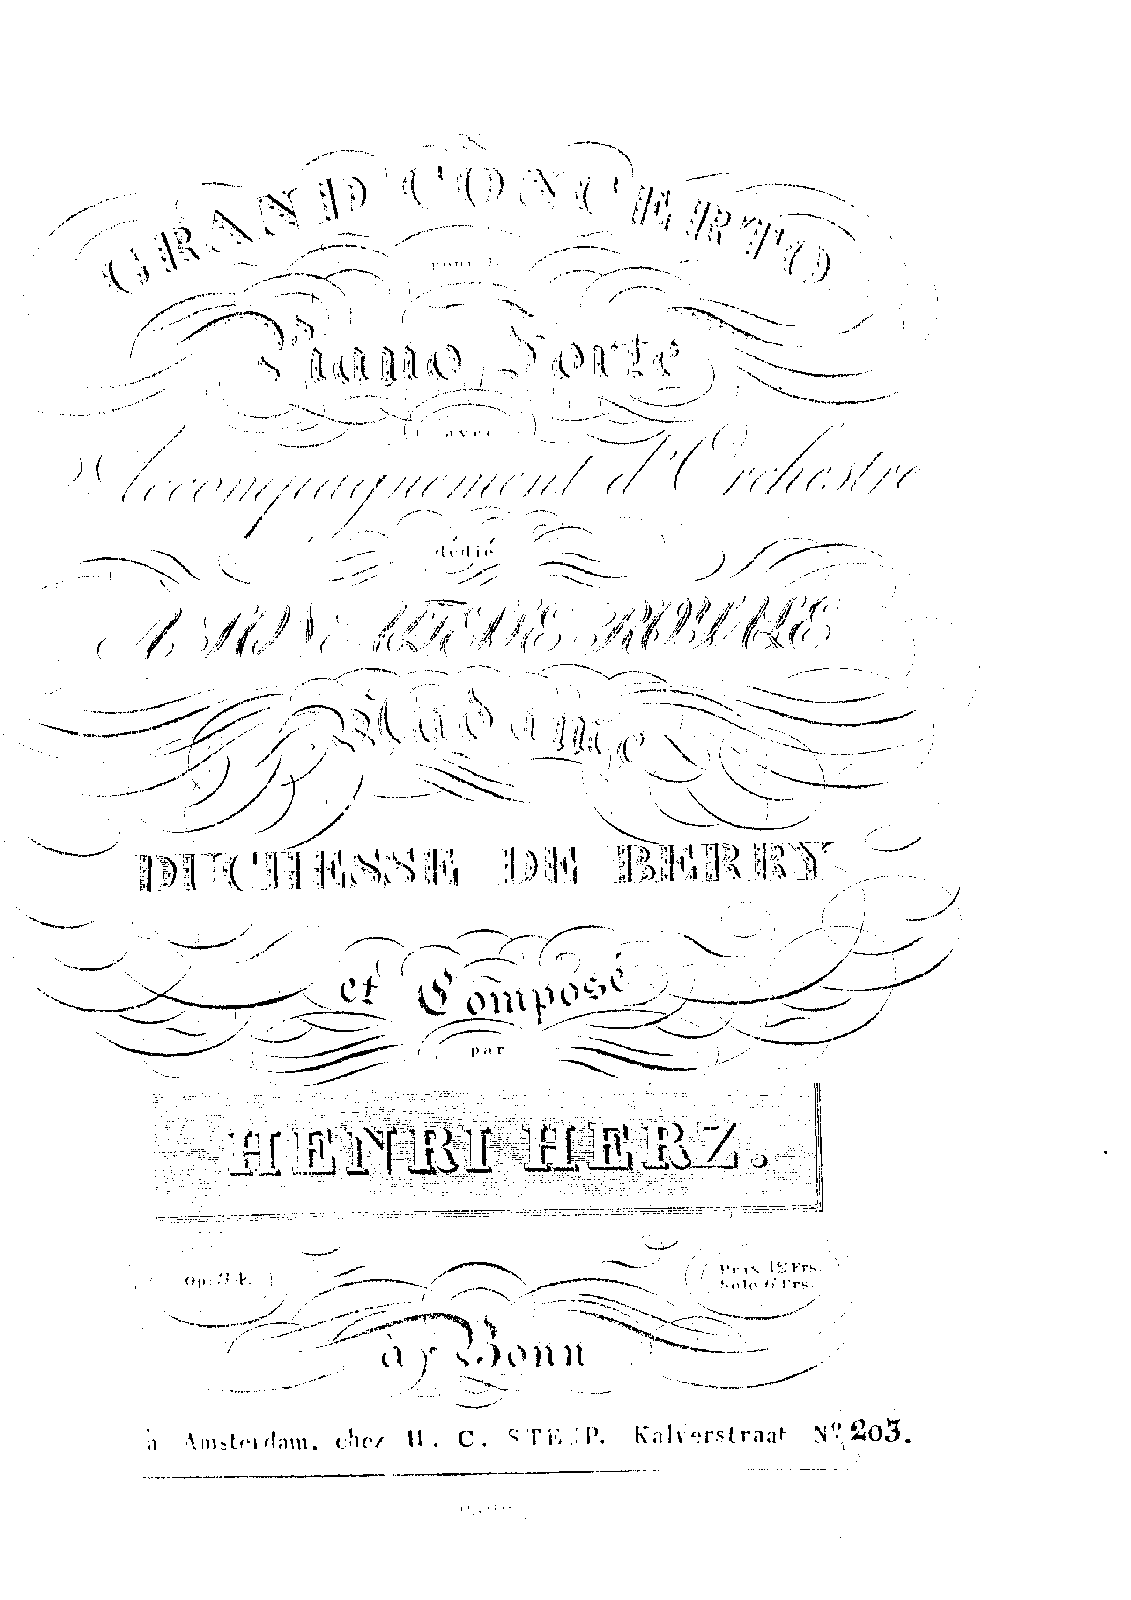 GRAND CONCERTO
pour le
Piano Forte
avec
Accompagnement d'Orchestre
dédié
A SON ALTESSE ROYALE
Madame
DUCHESSE DE BERRY
et Composé
par
HENRI HERZ.
Op. 34.
Prix 12 Frs.
Solo 6 Frs.
à Bonn
à Amsterdam, chez H. C. STEUP. Kalverstraat Nº 203.